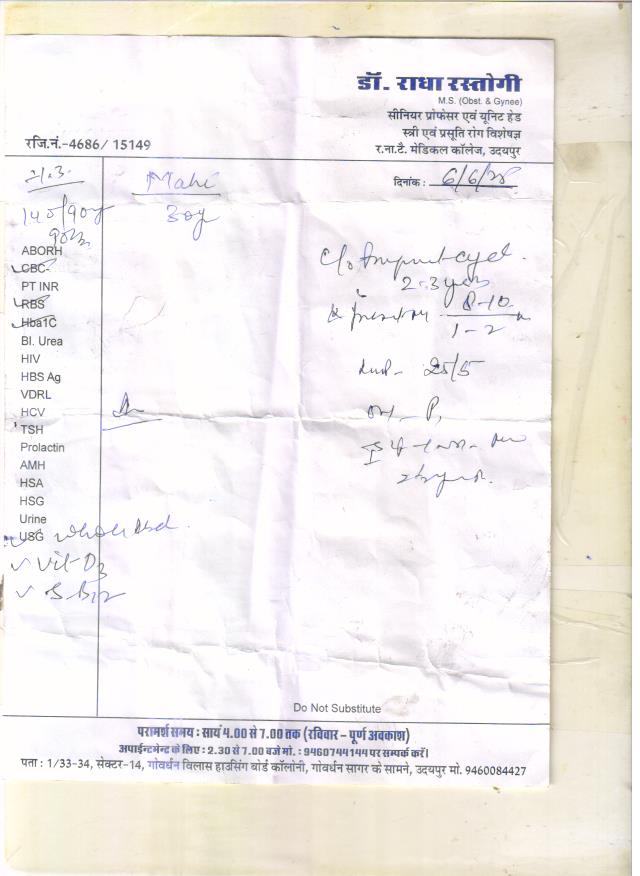 डॉ. राधा रस्तोगी
M.S. (Obst. & Gynee)
सीनियर प्रोफेसर एवं यूनिट हेड
स्त्री एवं प्रसूति रोग विशेषज्ञ
र.ना.टै. मेडिकल कॉलेज, उदयपुर
रजि.नं.-4686/ 15149
दिनांक : 6/6/
Mahi
140/90
30y
ABORH
CBC
PT INR
RBS
Hba1C
Bl. Urea
HIV
HBS Ag
VDRL
HCV
TSH
Prolactin
AMH
HSA
HSG
Urine
USG whole Abd.
Vit-D3
S B12
C/o
2-3 years
8-10
1-2
25/5
Do Not Substitute
परामर्श समय : सायं 4.00 से 7.00 तक (रविवार – पूर्ण अवकाश)
अपाईन्टमेन्ट के लिए : 2.30 से 7.00 बजे मो. : 9460744144 पर सम्पर्क करें।
पता : 1/33-34, सेक्टर-14, गोवर्धन विलास हाउसिंग बोर्ड कॉलोनी, गोवर्धन सागर के सामने, उदयपुर मो. 9460084427